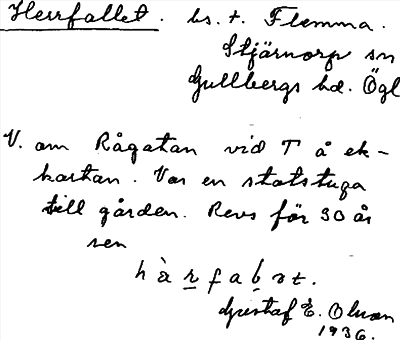 Herrfallet. bs. t. Flemma.
Stjärnorp sn
Gullbergs hd. Ögl
V. om Rågatan vid T å ek-
kartan. Var en statstuga
till gården. Revs för 30 år
sen
h à r f a b ət.
Gustaf E. Olson
1936.